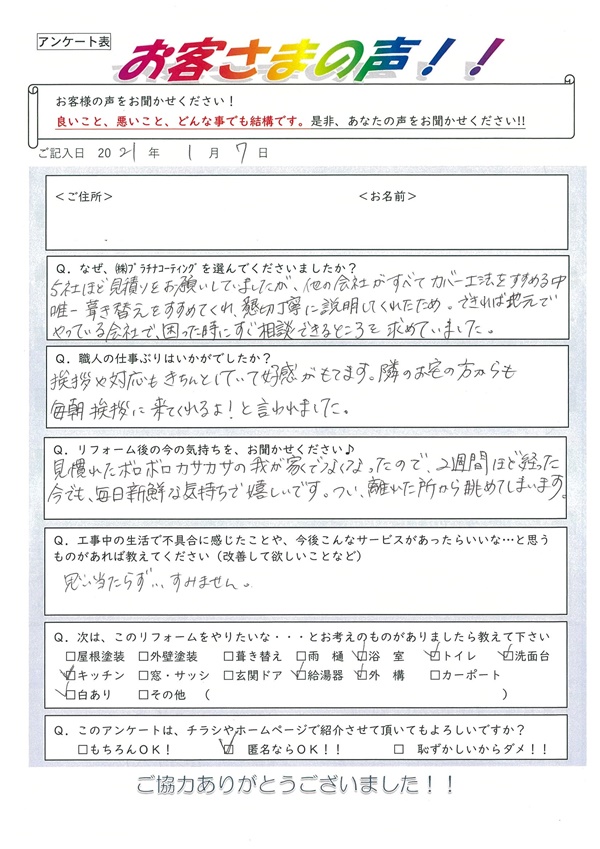 アンケート表
お客さまの声！！
お客様の声をお聞かせください！
良いこと、悪いこと、どんな事でも結構です。是非、あなたの声をお聞かせください!!
ご記入日 2021年 1月 7日
＜ご住所＞ ＜お名前＞
Q．なぜ、㈱プラチナコーティングを選んでくださいましたか？
5社ほど見積りをお願いしていましたが、他の会社がすべてカバー工法をすすめる中
唯一葺き替えをすすめてくれ、懇切丁寧に説明してくれたため。できれば地元で
やっている会社で、困った時にすぐ相談できるところを求めていました。
Q．職人の仕事ぶりはいかがでしたか？
挨拶や対応もきちんとしていて好感がもてます。隣のお宅の方からも
毎朝挨拶に来てくれるよ！と言われました。
Q．リフォーム後の今の気持ちを、お聞かせください♪
見慣れたボロボロカサカサの我が家でなくなったので、2週間ほど経った
今でも、毎日新鮮な気持ちで嬉しいです。つい、離れた所から眺めてしまいます。
Q．工事中の生活で不具合に感じたことや、今後こんなサービスがあったらいいな…と思う
ものがあれば教えてください（改善して欲しいことなど）
思い当たらず… すみません。
Q．次は、このリフォームをやりたいな・・・とお考えのものがありましたら教えて下さい
□屋根塗装 □外壁塗装 □葺き替え □雨 樋 ☑浴 室 ☑トイレ ☑洗面台
☑キッチン □窓・サッシ □玄関ドア ☑給湯器 ☑外 構 □カーポート
☑白あり □その他 （ ）
Q．このアンケートは、チラシやホームページで紹介させて頂いてもよろしいですか？
□もちろんOK！ ☑ 匿名ならOK！！ □ 恥ずかしいからダメ！！
ご協力ありがとうございました！！